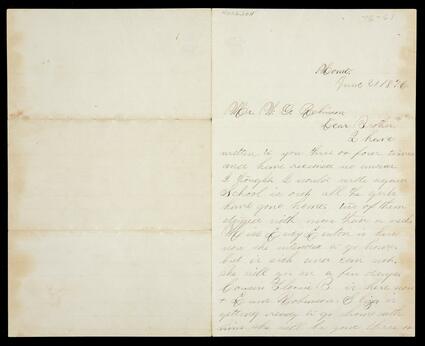 Home.
June 21 1876
Mr W. G. Robinson
Dear Brother
I have
written to you three or four times
and have received no answer
I thought I would write again
School is out all the girls
have gone home. two of them
with more than a
Miss is here
now she intended to go home
but is sick and can not
she will go in a few days
Cousin B is here now
+ Robinson Eliza is
getting ready to go home with
she will be gone three or